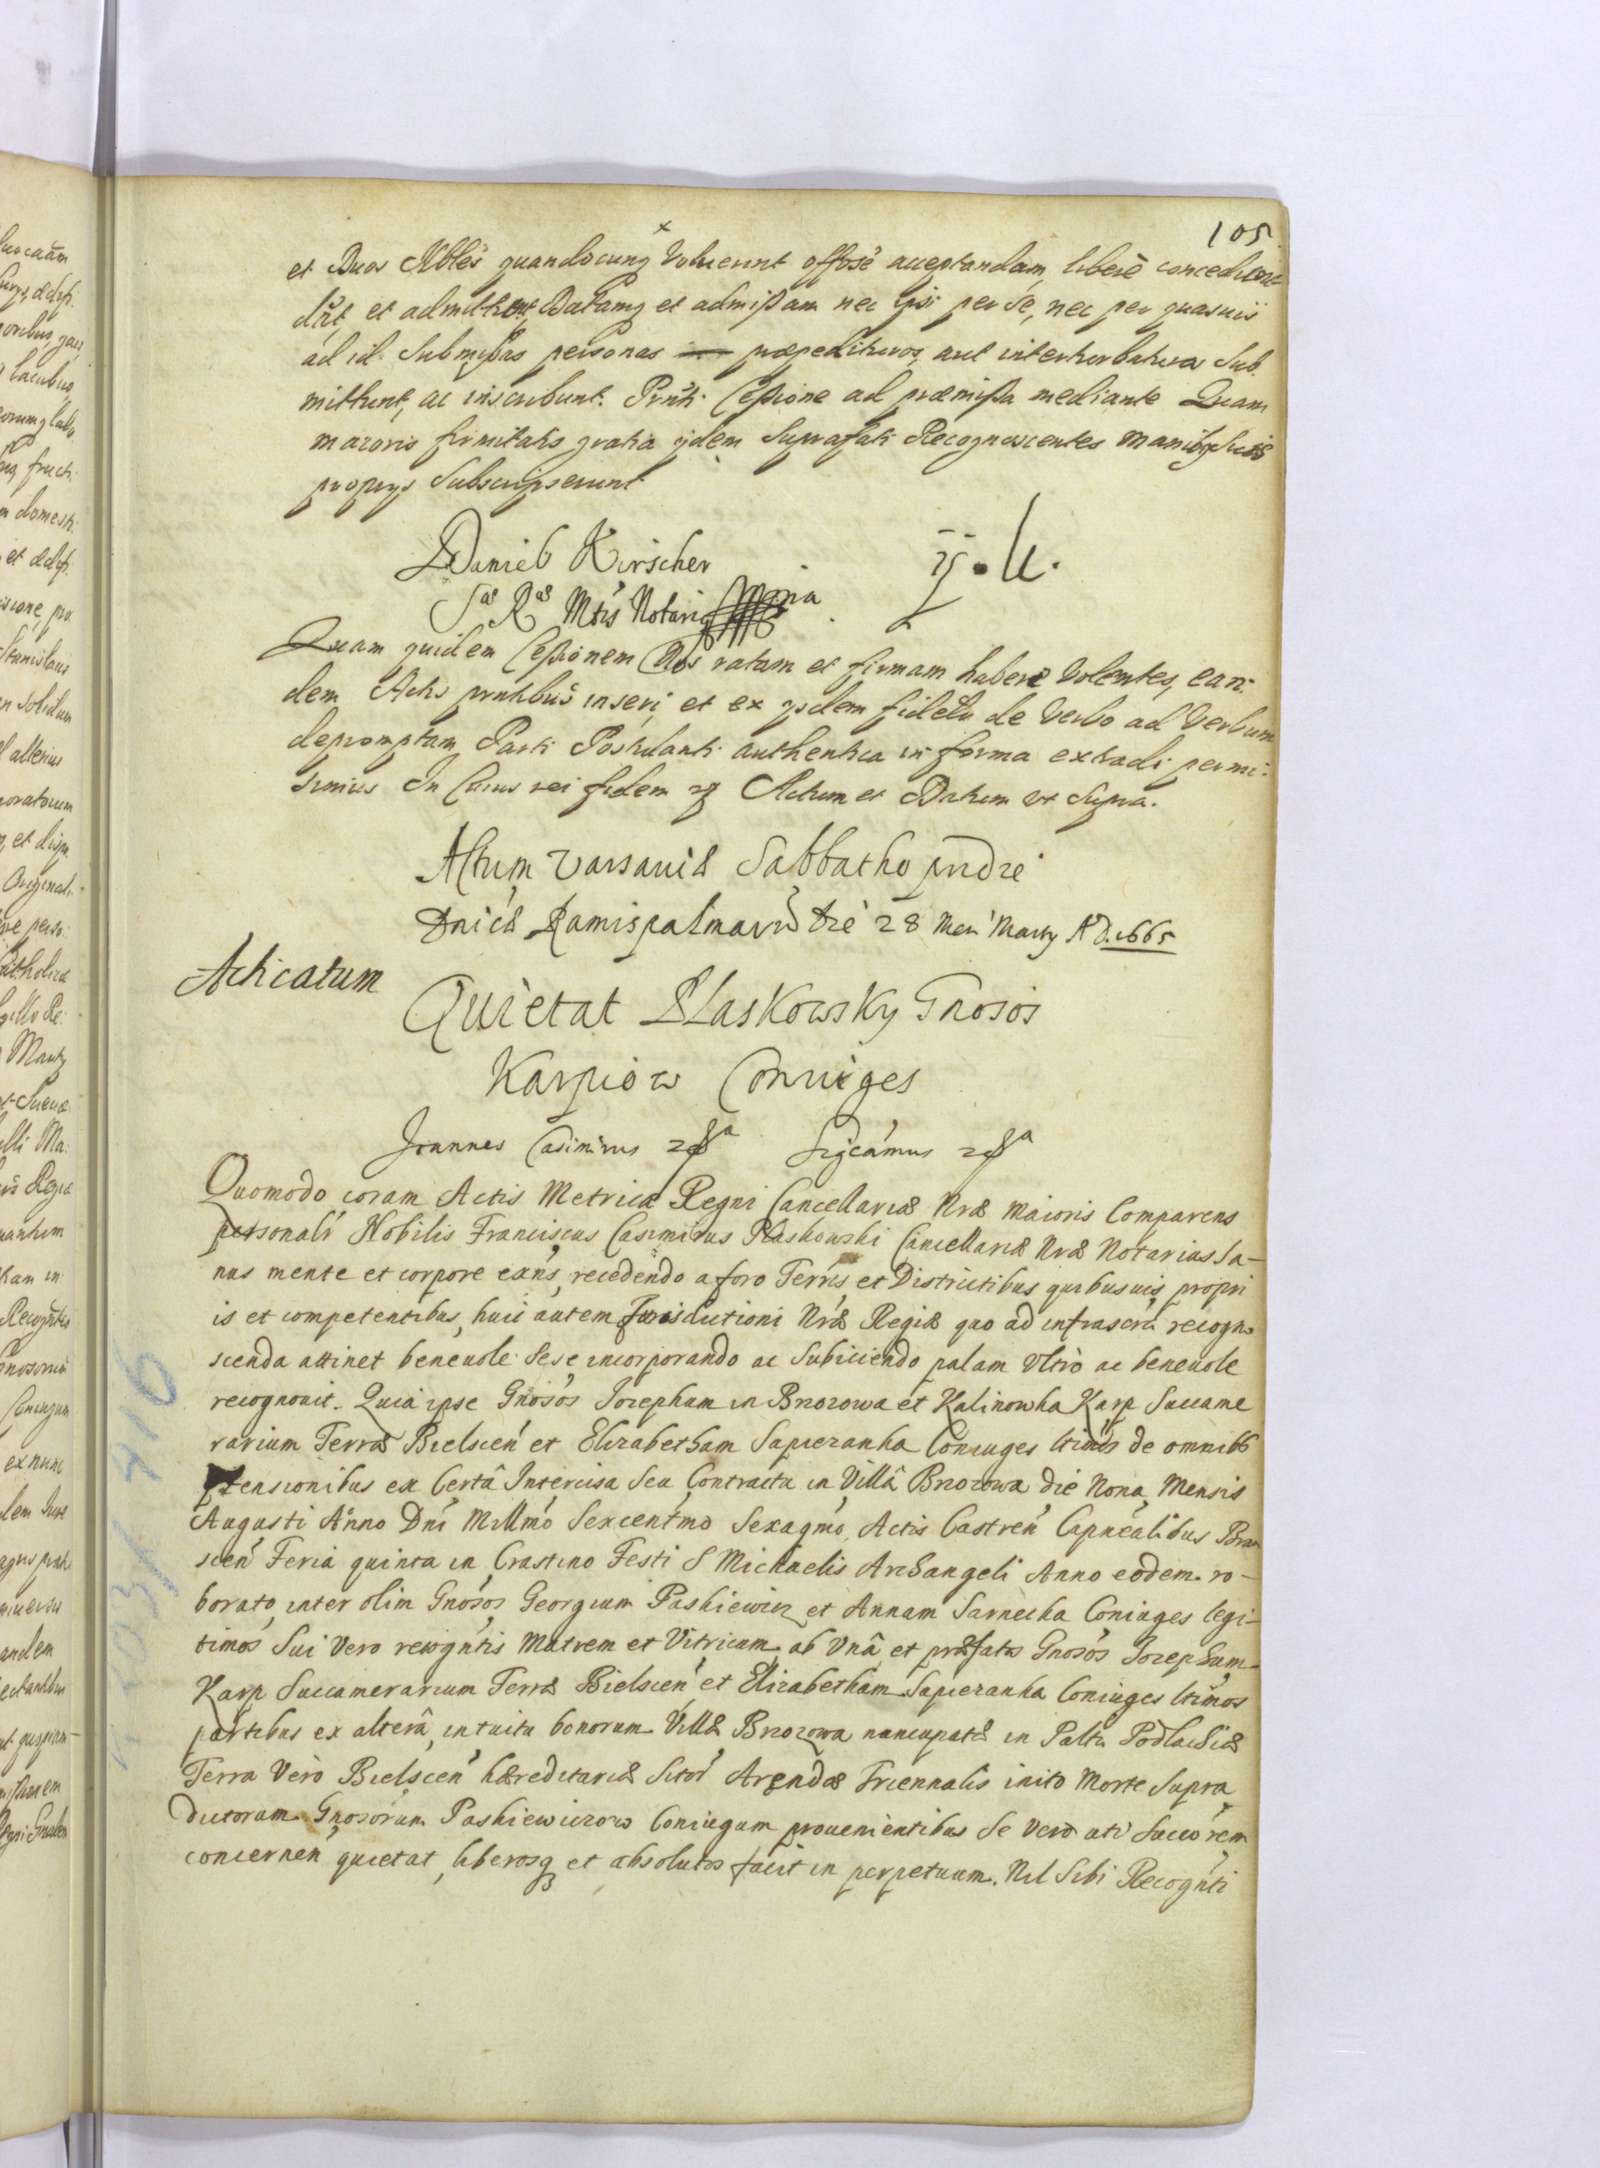 105
et Duos Nobles quandocunq Voluerint offose acceptandam, liberè concedunt
dāt, et admittent, Datamq et admißam nec ipsi per se, nec per quasuis
ad id Submißas personas præpedituros, aut interturbaturos Sub.
mittunt, ac inscribunt. Pruti Ceßione ad præmißa mediante Quam
maioris firmitatis gratia ijdem Suprafati Recognoscentes manibq suis
proprys Subscripserunt
Daniel Kirscher
Sæ Ræ Mtis Notarig mpia
Quam quidem Ceßionem Nos ratam et firmam habere Volentes, ean:
dem Actis pntibus inseri, et ex ysdem fideliter de Verbo ad Verbum
depromptam Parti Postulanti authentica in forma extradi permi:
simus In Cuius rei fidem Actum et Datum vt Supra.
Actum Varsauiæ Sabbatho pridie
Dnicæ Ramispalmarū die 28 Men Marty AD. 1665
Acticatum
Quietat Plaskowsky Gnosos
Karpiow Coniuges
Joannes Casimirus Sigcamus
Quomodo coram Actis Metricæ Regni Cancellariæ Nræ maioris Comparens
personalr Nobilis Franciscus Casimirus Plaskowski Cancellariæ Nræ Notarius Sa-
nus mente et corpore exns, recedendo a foro Terris et Districtibus quibusuis propri
is et competentibus, huic autem Jurisdictioni Nræ Regiæ quo ad infrascra recogno
scenda attinet beneuole sese incorporando ac Subiiciendo palam Vltrò ac beneuole
recognouit. Quia ipse Gnosos Iozephum in Brzozowa et Kalinowka Karp Succame
rarium Terræ Bielscen et Elizabetham Sapiezanka Coniuges ltimos de omnibb
ptensionibus ex Certâ Intercisa Seu Contractu in Villâ Brzozowa die Nona Mensis
Augusti Anno Dni Millmo Sexcentmo Sexagmo Actis Castren Capnealibus Bran
scen Feria quinta in Crastino Festi S Michaelis Archangeli Anno eodem ro-
borato, inter olim Gnosos Georgium Paskiewicz et Annam Sarnecka Coniuges legi-
timos Sui Vero recogntis Matrem et Vitricum ab Vnâ, et præfatos Gnosos Iozephum
Karp Succamerarium Terræ Bielscen et Elizabetham Sapiezanka Coniuges ltimos
partibus ex alterâ, intuitu bonorum Villæ Brzozowa nuncupatæ in Paltu Podlachiæ
Terra Verò Bielscen hæreditariæ Sitor Arendæ Triennalis inito Morte Supra
dictorum Gnosorum Paskiewiczow Coniugum prouenientibus Se Vero uti Succorem
concernen quietat, liberosq et absolutos facit in perpetuum. Nil Sibi Recognti